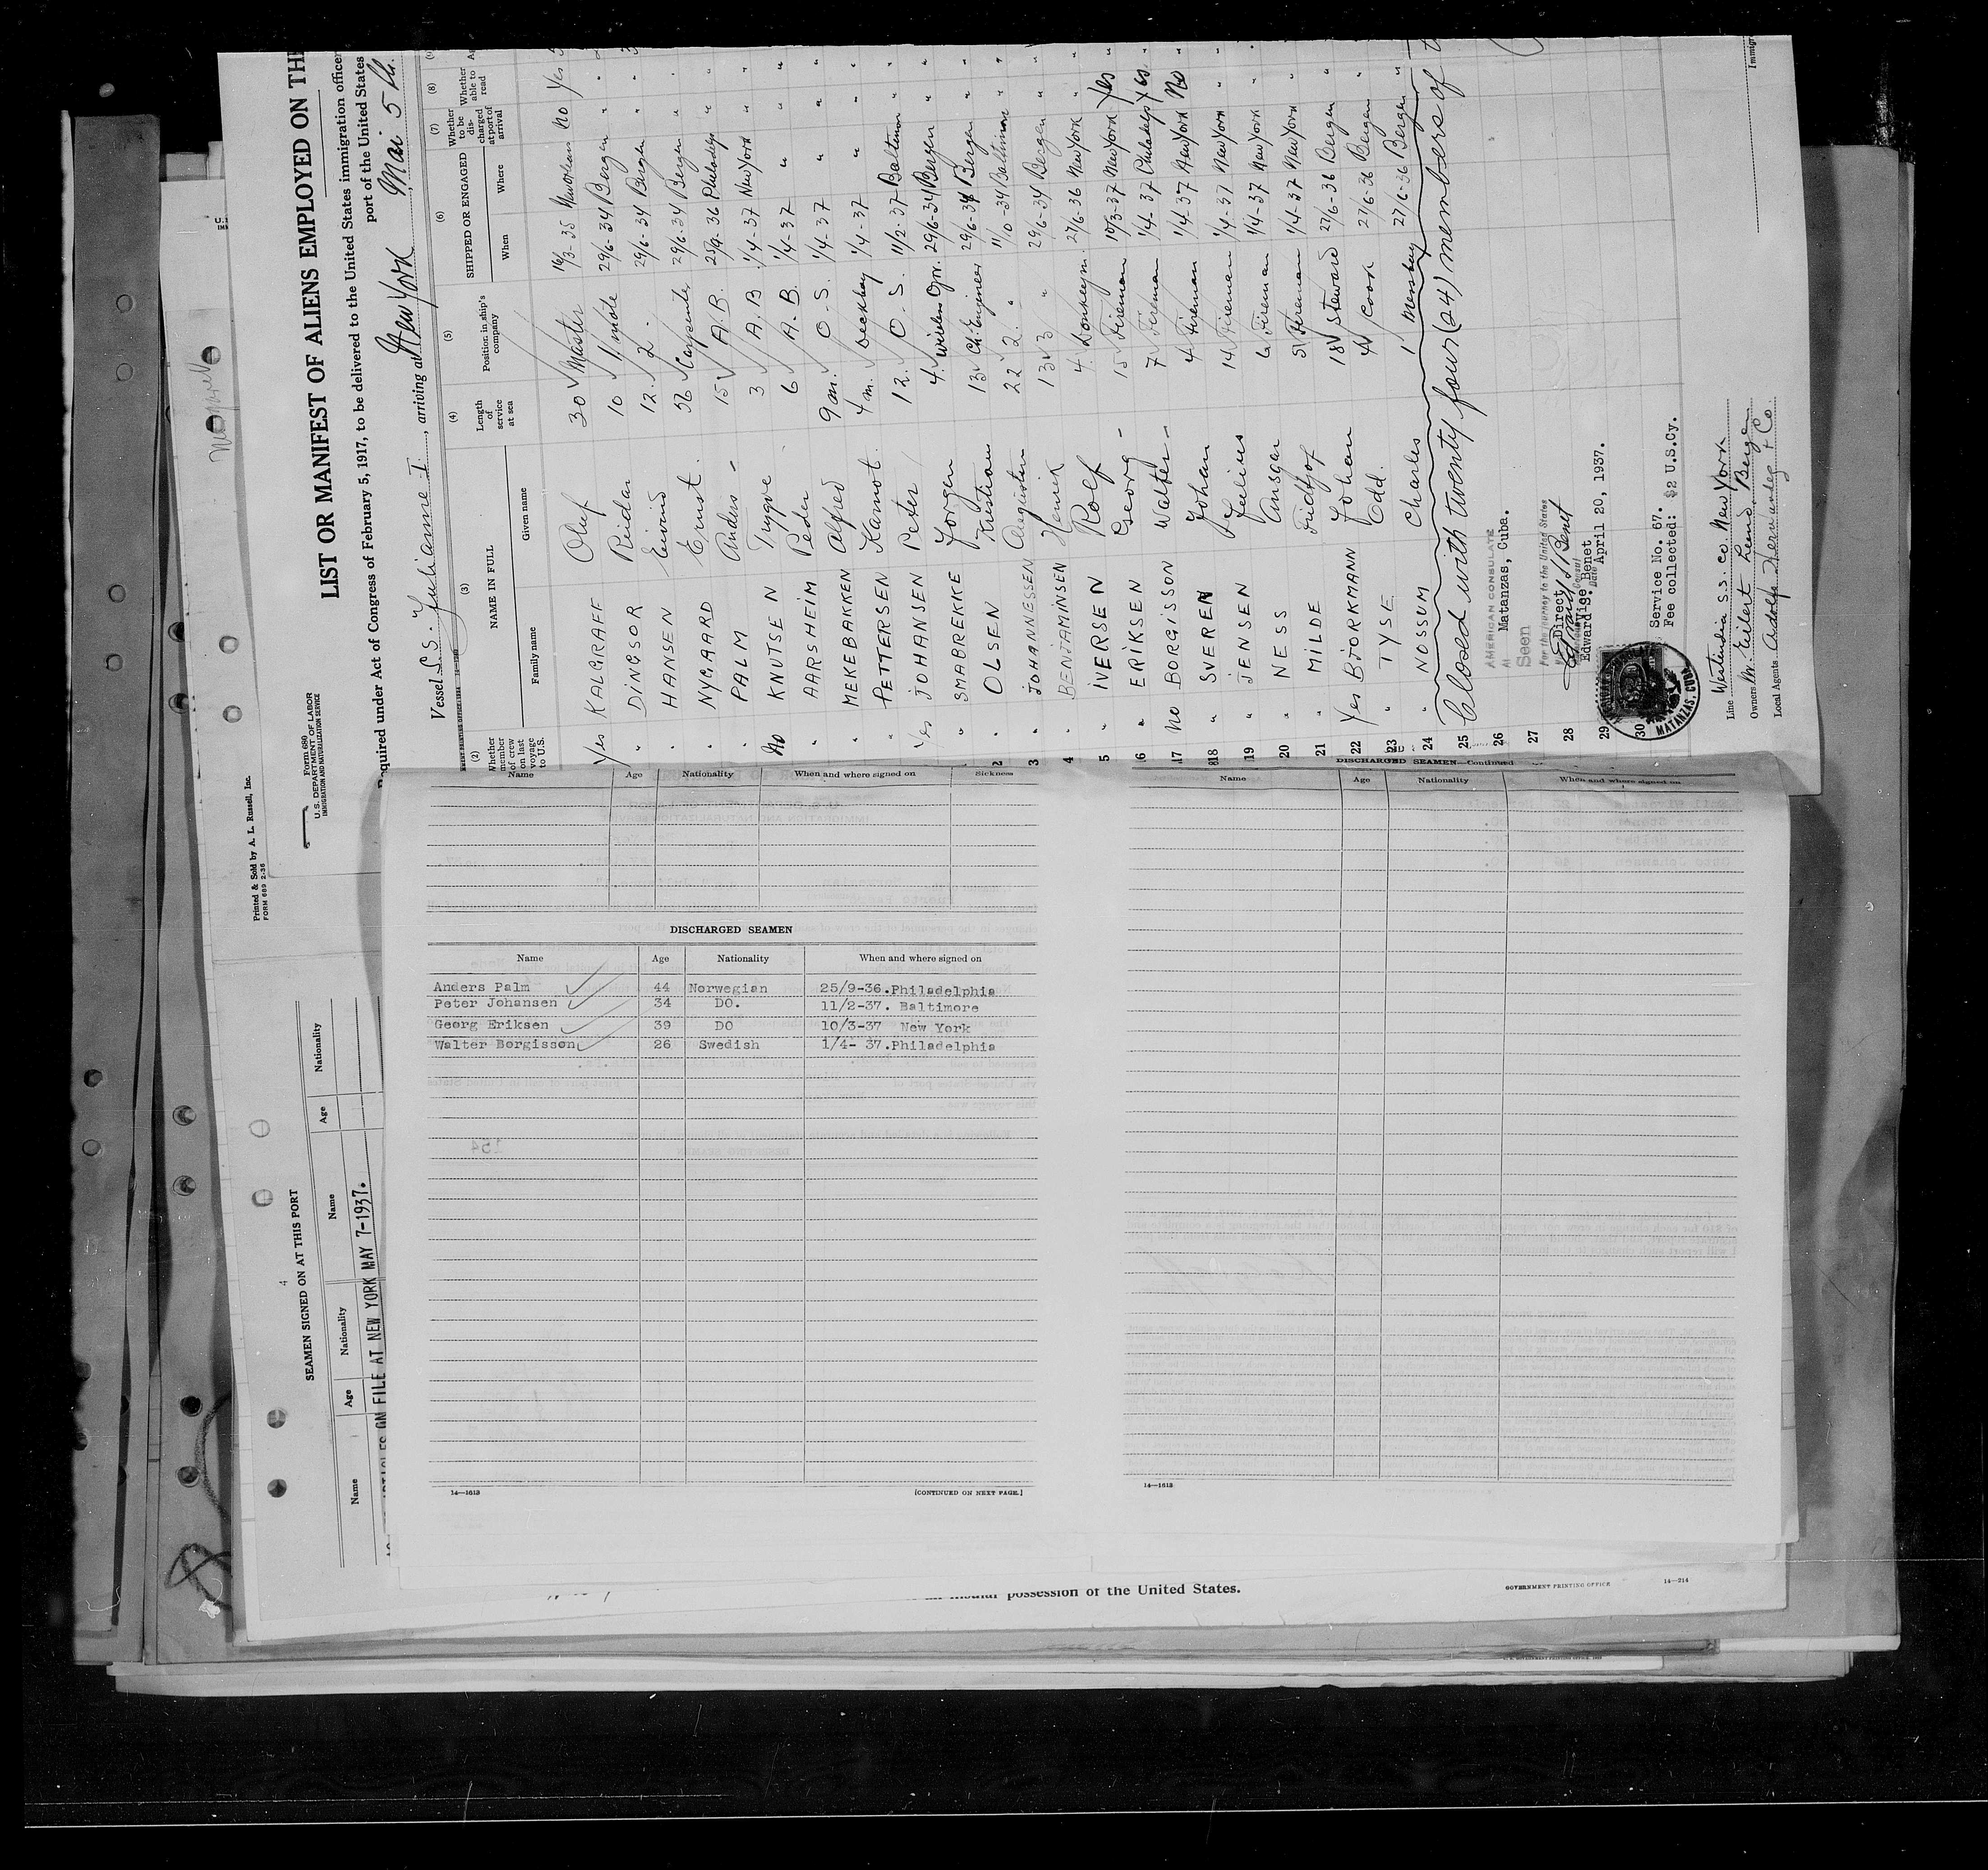 LIST OR MANIFEST OF ALIENS EMPLOYED ON THE
Required under Act of Congress of February 5, 1917, to be delivered to the United States immigration officer
port of the United States
Form 680
U. S. DEPARTMENT OF LABOR
IMMIGRATION AND NATURALIZATION SERVICE
Vessel S.S. Julianne I, arriving at New York, Mai 5 th.
(2) (3) (4) (5) (6) (7) (8)
Whether member of crew on last voyage to U.S.
NAME IN FULL
Family name Given name
Length of service at sea
Position in ship's company
SHIPPED OR ENGAGED
When Where
Whether to be discharged at port of arrival
Whether able to read
Yes KALGRAFF Olef 30 Master 16/3-35 no Yes
" DINGSOR Reidar 10 1. mate 29/6-34 Bergen " "
" HANSEN Eivind 12. 2. " 29/6-34 Bergen " "
" NYGAARD Ernst 36 Carpenter 29/6-34 Bergen " "
" PALM Anders - 15 A.B. 25/9-36 Philadelph " "
No KNUTSEN Trygve 3 A.B 1/4-37 New York " "
" AARSHEIM Peder 6 A.B. 1/4-37 " " "
" MEKEBAKKEN Alfred 9 m. O-S. 1/4-37 " " "
" PETTERSEN 4 m. Deckboy 1/4-37 " " "
Yes JOHANSEN Peter 12. O.S. 11/2-37 Baltimor " "
" SMABREKKE Jorgen 4. Wireless Opr. 29/6-34 Bergen " "
" OLSEN Kristian 13 Ch. Engineer 29/6-34 Bergen " "
" JOHANNESSEN 22 2. " 11/10-34 Baltimor " "
4 " BENJAMINSEN Henrik 13 3 " 29/6-34 Bergen " "
5 " IVERSEN Rolf 4. Donkeym. 27/6-36 New York " "
6 " ERIKSEN Georg - 15 Fireman 10/3-37 New York Yes "
17 No BORGISSON Walter - 7 Fireman 1/4-37 Philadelph Yes "
18 " SVEREN Johan 4 Fireman 1/4-37 New York No "
19 " JENSEN 14 Fireman 1/4-37 New York " "
20 " NESS Ansgar 6 Fireman 1/4-37 New York " "
21 " MILDE Fridtjof 5 Fireman 1/4-37 New York " "
22 Yes BJORKMANN Johan 18 Steward 27/6-36 Bergen " "
23 " TYSE Odd. 4 Cook 27/6-36 Bergen " "
24 " NOSSUM Charles 1 Messboy 27/6-36 Bergen " "
25 Closed with twenty four (24) members of
26
27
28
29
30
AMERICAN CONSULATE
At Matanzas, Cuba.
Seen
For the journey to the United States
Direct
Edward S. Benet
April 20, 1937.
MATANZAS, CUBA.
Service No. 67.
Fee collected: $2 U.S.Cy.
Line Westindia S.S. Co. New York
Owners Eilert Lund Bergen
Local Agents
Printed & Sold by A. L. Russell, Inc.
FORM 689 2-36
4
SEAMEN SIGNED ON AT THIS PORT
Name Age Nationality Name Age Nationality
ARTICLES ON FILE AT NEW YORK MAY 7-1937.
Name Age Nationality When and where signed on Sickness
DISCHARGED SEAMEN
Name Age Nationality When and where signed on
Anders Palm 44 Norwegian 25/9-36.Philadelphia
Peter Johansen 34 DO. 11/2-37. Baltimore
Georg Eriksen 39 DO 10/3-37 New York
Walter Borgisson 26 Swedish 1/4- 37.Philadelphia
14—1613 [CONTINUED ON NEXT PAGE.]
DISCHARGED SEAMEN—Continued
Name Age Nationality When and where signed on
14—1613
possession of the United States.
GOVERNMENT PRINTING OFFICE 14—214